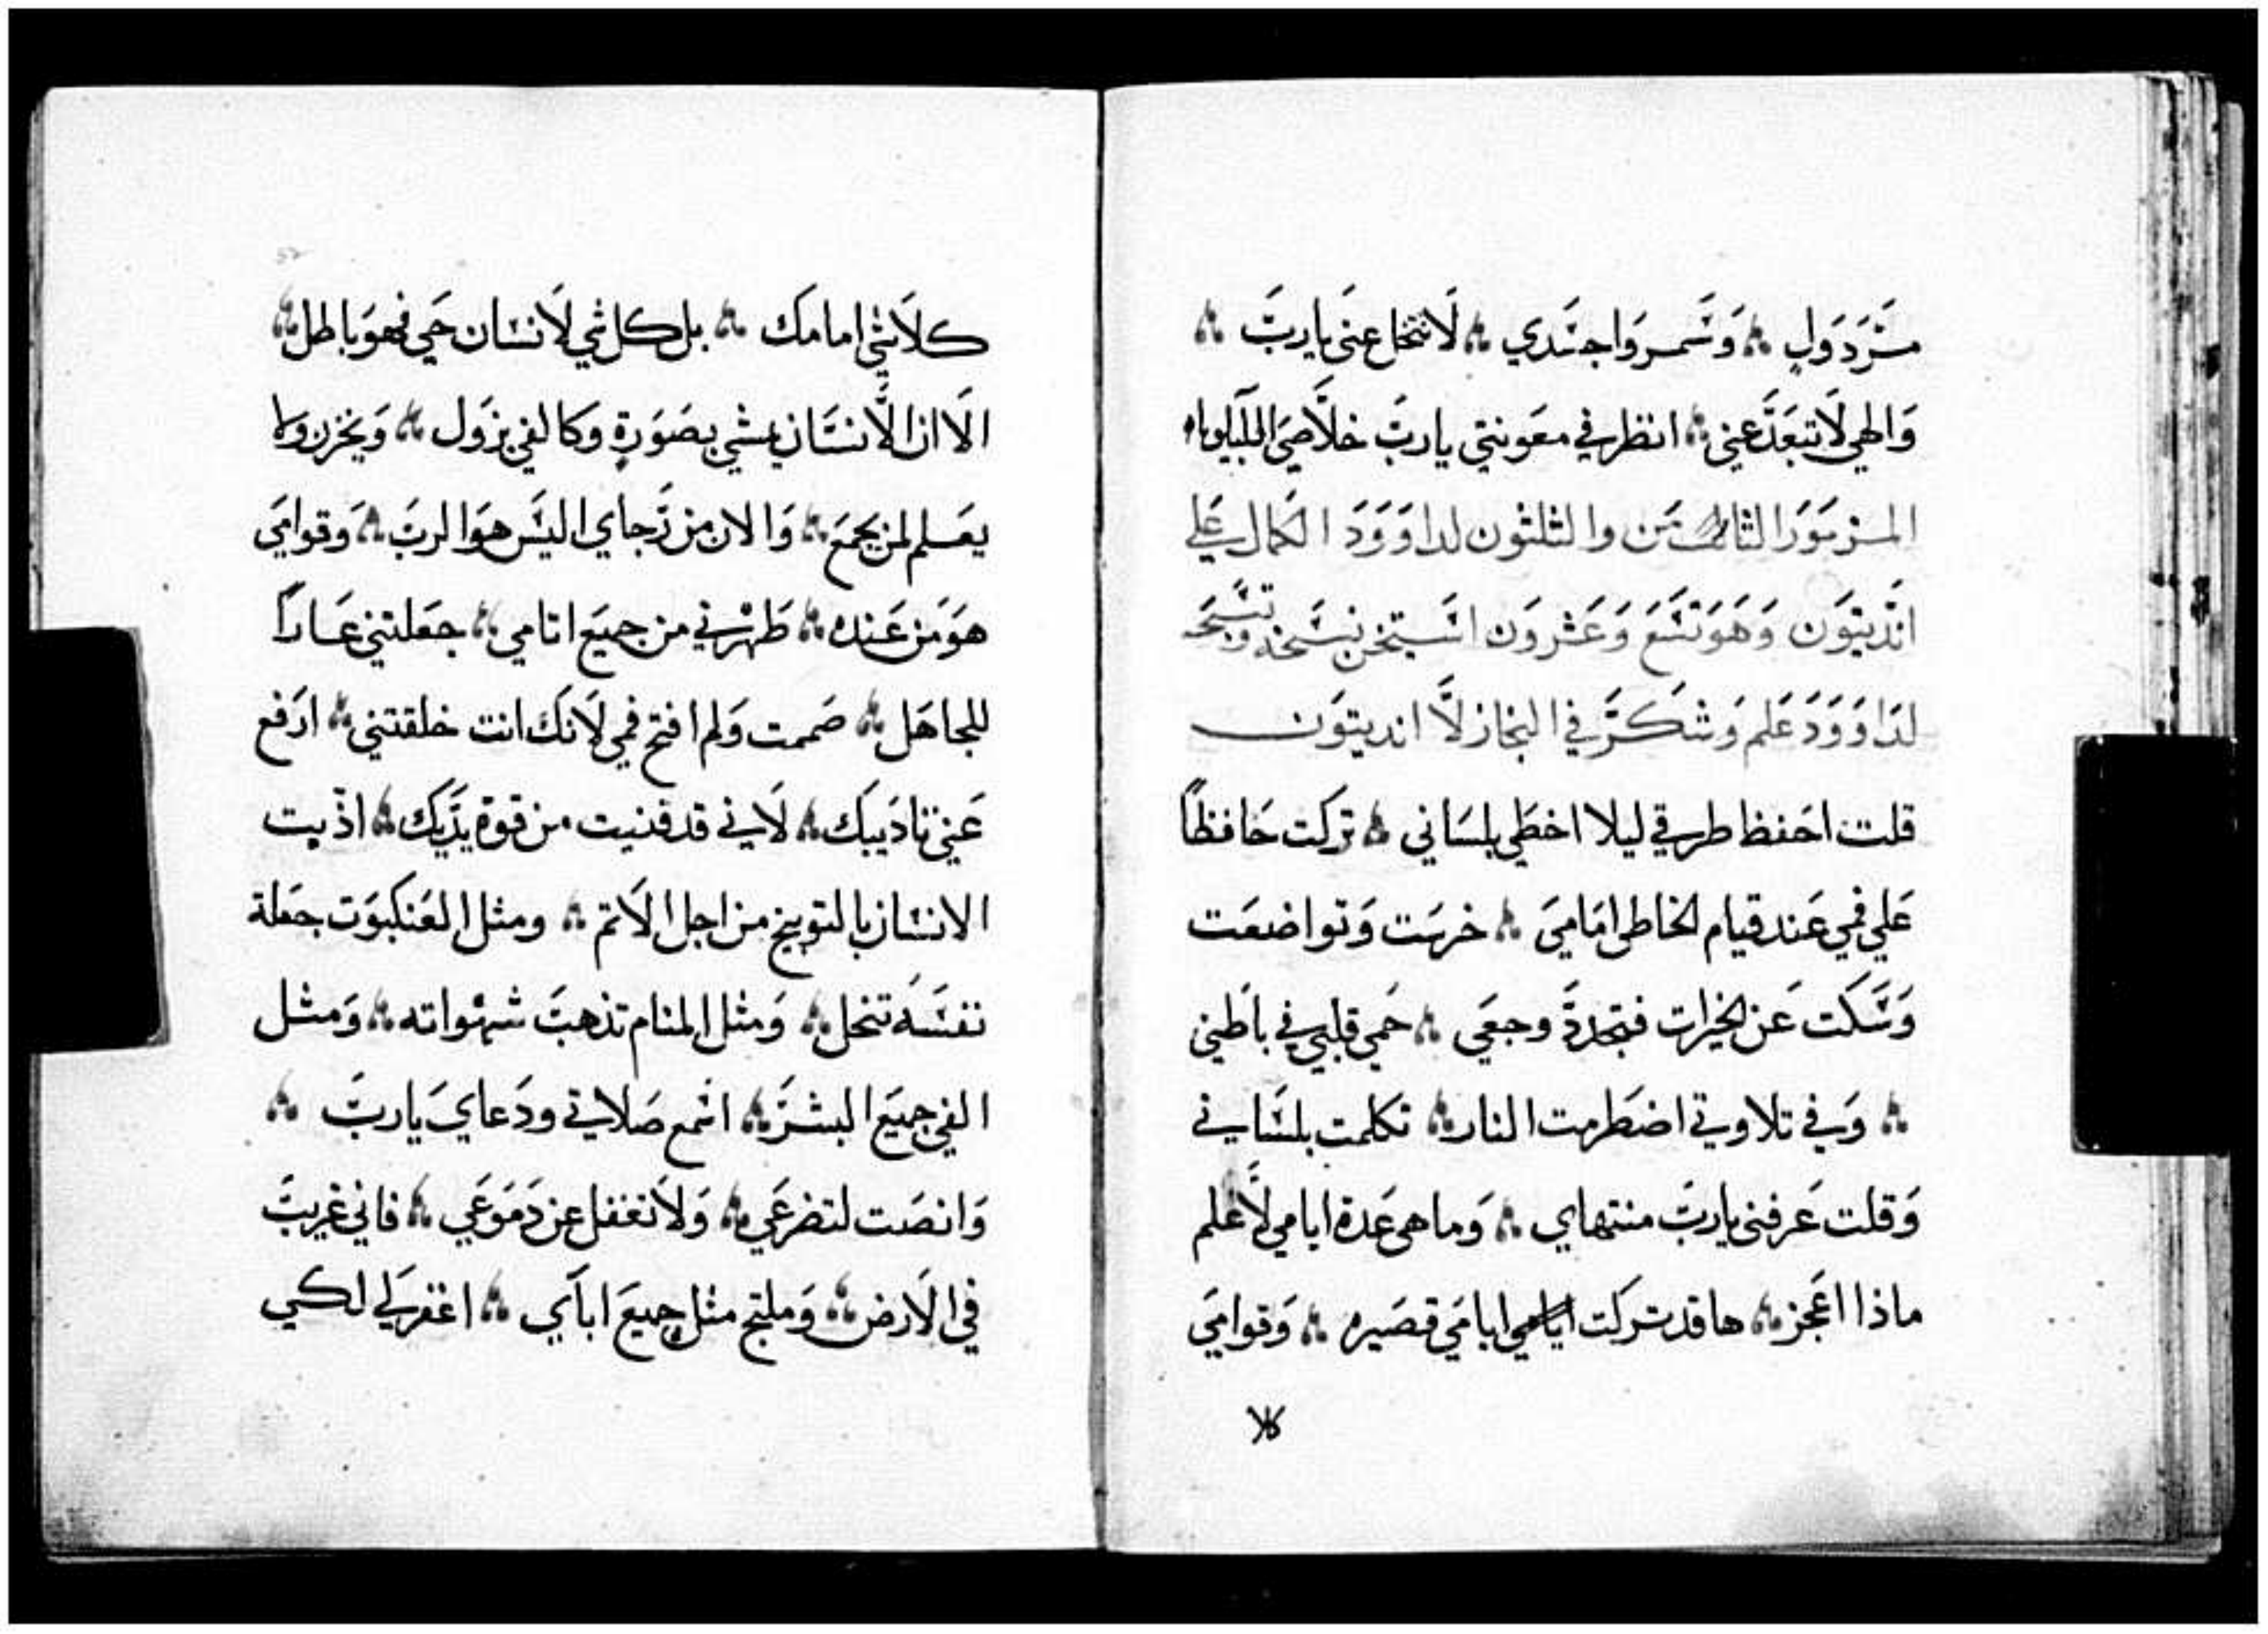 مرذول وسمروا جسدي لا تتخلا عني يارب
والهي لا تبعد عني انظر في معونتي يارب خلاصي الليلوياه
المزمور الثامن والثلثون لداوود الكمال علي
انديتون وهو تسع وعشرون استيخن نسخه
لداوود علم وشكر في لا انديتون
قلت احفظ طرقي ليلا اخطي بلساني تركت حافظا
علي فمي عند قيام الخاطي امامي خرست وتواضعت
وسكت عن الخيرات فتجددة وجعي حمي قلبي في باطني
وفي تلاوتي اضطرمت النار تكلمت بلساني
وقلت عرفني يارب منتهاي وما هي عدة ايامي لاعلم
ماذا اعجز ها قد تركت ايامي قصيره وقوامي
كلا
كلاشي امامك بل كل شي لانسان حي فهو باطل
الا ان الانسان يمشي بصورة وكالفي يزول ويخزن ولا
يعلم لمن يجمع والان من رجاي اليس هو الرب وقوامي
هو من عنده طهرني من جميع اثامي جعلتني عارا
للجاهل صممت ولم افتح فمي لانك انت خلقتني ارفع
عني تاديبك لاني قد فنيت من قوة يديك اذيت
الانسان بالتوبيخ من اجل الاثم ومثل العنكبوت جعلة
نفسه تنحل ومثل المنام تذهب شهواته ومثل
الفي جميع البشر اسمع صلاتي ودعاي يارب
وانصت لتضرعي ولا تغفل عن دموعي فاني غريب
في الارض وملتجي مثل جميع اباي اغفر لي لكي